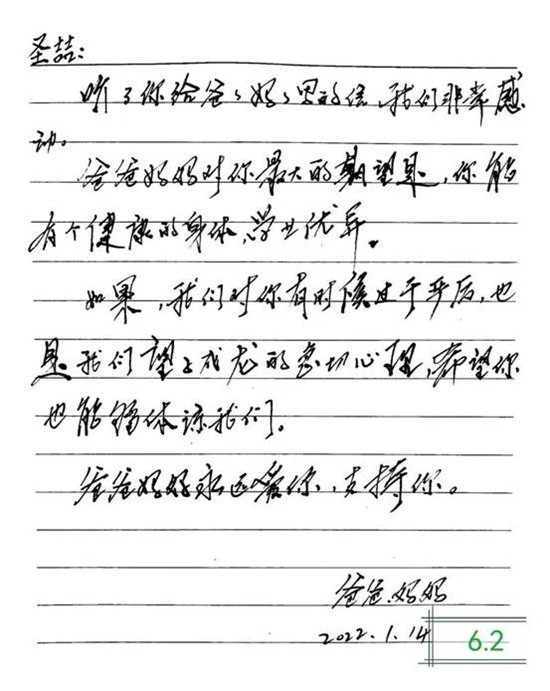 圣喆：
听了你给爸、妈、里的信，我们非常感
动。
爸爸妈妈对你最大的期望是，你能
有个健康的身体，学业优异。
如果，我们对你有时候过于严厉，也
是我们望子成龙的急切心理，希望你
也能够体谅我们。
爸爸妈妈永远爱你，支持你。
爸爸、妈妈
2022.1.14
6.2